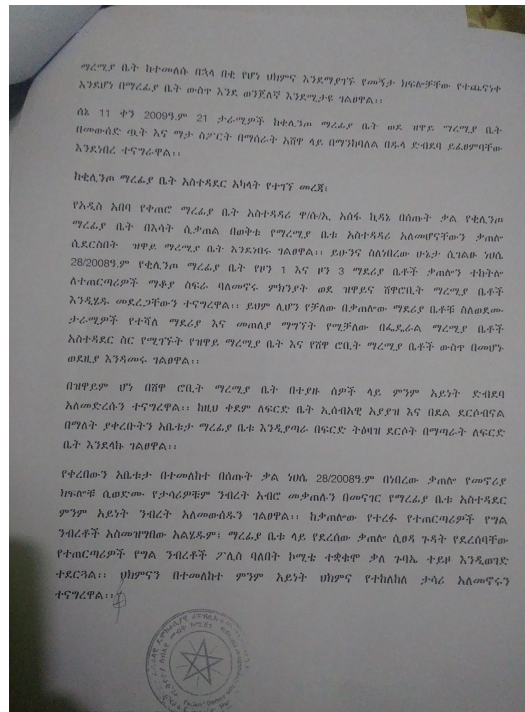 ማረሚያ ቤት ከተመለሱ በኋላ በቂ የሆነ ህክምና እንደማያገኙ የመኝታ ክፍሎቻቸው የተጨናነቀ
እንደሆነ በማረፊያ ቤት ውስጥ እንደ ወንጀለኛ እንደሚታዩ ገልፀዋል፡፡
ሰኔ 11 ቀን 2009ዓ.ም 21 ታራሚዎች ከቂሊንጦ ማረፊያ ቤት ወደ ዝዋይ ማረሚያ ቤት
በመውሰድ ጧት እና ማታ ስፖርት በማሰራት አሸዋ ላይ በማንከባለል በዱላ ድብደባ ይፈፀምባቸው
እንደነበረ ተናግራዋል፡፡
ከቂሊንጦ ማረፊያ ቤት አስተዳደር አካላት የተገኘ መረጃ፤
የአዲስ አበባ የቀጠሮ ማረፊያ ቤት አስተዳዳሪ ዋ/ሱ/ኢ. አሰፋ ኪዳኔ በሰጡት ቃል የቂሊንጦ
ማረፊያ ቤት በእሳት ሲቃጠል በወቅቱ የማረሚያ ቤቱ አስተዳዳሪ አለመሆናቸውን ቃጠሎ
ሲደርስበት ዝዋይ ማረሚያ ቤት እንደነበሩ ገልፀዋል፡፡ ይሁንና ስለነበረው ሁኔታ ሲገልፁ ነሀሴ
28/2008ዓ.ም የቂሊንጦ ማረፊያ ቤት የዞን 1 እና ዞን 3 ማደሪያ ቤቶች ቃጠሎን ተከትሎ
ለተጠርጣሪዎች ማቆያ ስፍራ ባለመኖሩ ምክንያት ወደ ዝዋይና ሸዋሮቢት ማረሚያ ቤቶች
እንዲሄዱ መደረጋቸውን ተናግረዋል፡፡ ይህም ሊሆን የቻለው በቃጠሎው ማደሪያ ቤቶቹ ስለወደሙ
ታራሚዎች የተሻለ ማደሪያ እና መጠለያ ማግኘት የሚቻለው በፌዴራል ማረሚያ ቤቶች
አስተዳደር ስር የሚገኙት የዝዋይ ማረሚያ ቤት እና የሸዋ ሮቢት ማረሚያ ቤቶች ውስጥ በመሆኑ
ወደዚያ እንዳመሩ ገልፀዋል፡፡
በዝዋይም ሆነ በሸዋ ሮቢት ማረሚያ ቤት በተያዙ ሰዎች ላይ ምንም አይነት ድብደባ
አለመድረሱን ተናግረዋል፡፡ ከዚህ ቀደም ለፍርድ ቤት ኢሰብአዊ አያያዝ እና በደል ደርሶብናል
በማለት ያቀረቡትን አቤቱታ ማረፊያ ቤቱ እንዲያጣራ በፍርድ ትዕዛዝ ደርሶት በማጣራት ለፍርድ
ቤት እንደላኩ ገልፀዋል፡፡
የቀረበውን አቤቱታ በተመለከተ በሰጡት ቃል ነሀሴ 28/2008ዓ.ም በነበረው ቃጠሎ የመኖሪያ
ክፍሎቹ ሲወድሙ የታሳሪዎቹም ንብረት አብሮ መቃጠሉን በመናገር የማረፊያ ቤቱ አስተዳደር
ምንም አይነት ንብረት አለመውሰዱን ገልፀዋል፡፡ ከቃጠሎው የተረፉ የተጠርጣሪዎች የግል
ንብረቶች አስመዝግበው አልሄዱም፤ ማረፊያ ቤቱ ላይ የደረሰው ቃጠሎ ሲፀዳ ጉዳት የደረሰባቸው
የተጠርጣሪዎች የግል ንብረቶች ፖሊስ ባለበት ኮሚቴ ተቋቁሞ ቃለ ጉባኤ ተይዞ እንዲወገድ
ተደርጓል፡፡ ህክምናን በተመለከተ ምንም አይነት ህክምና የተከለከለ ታሳሪ አለመኖሩን
ተናግረዋል፡፡